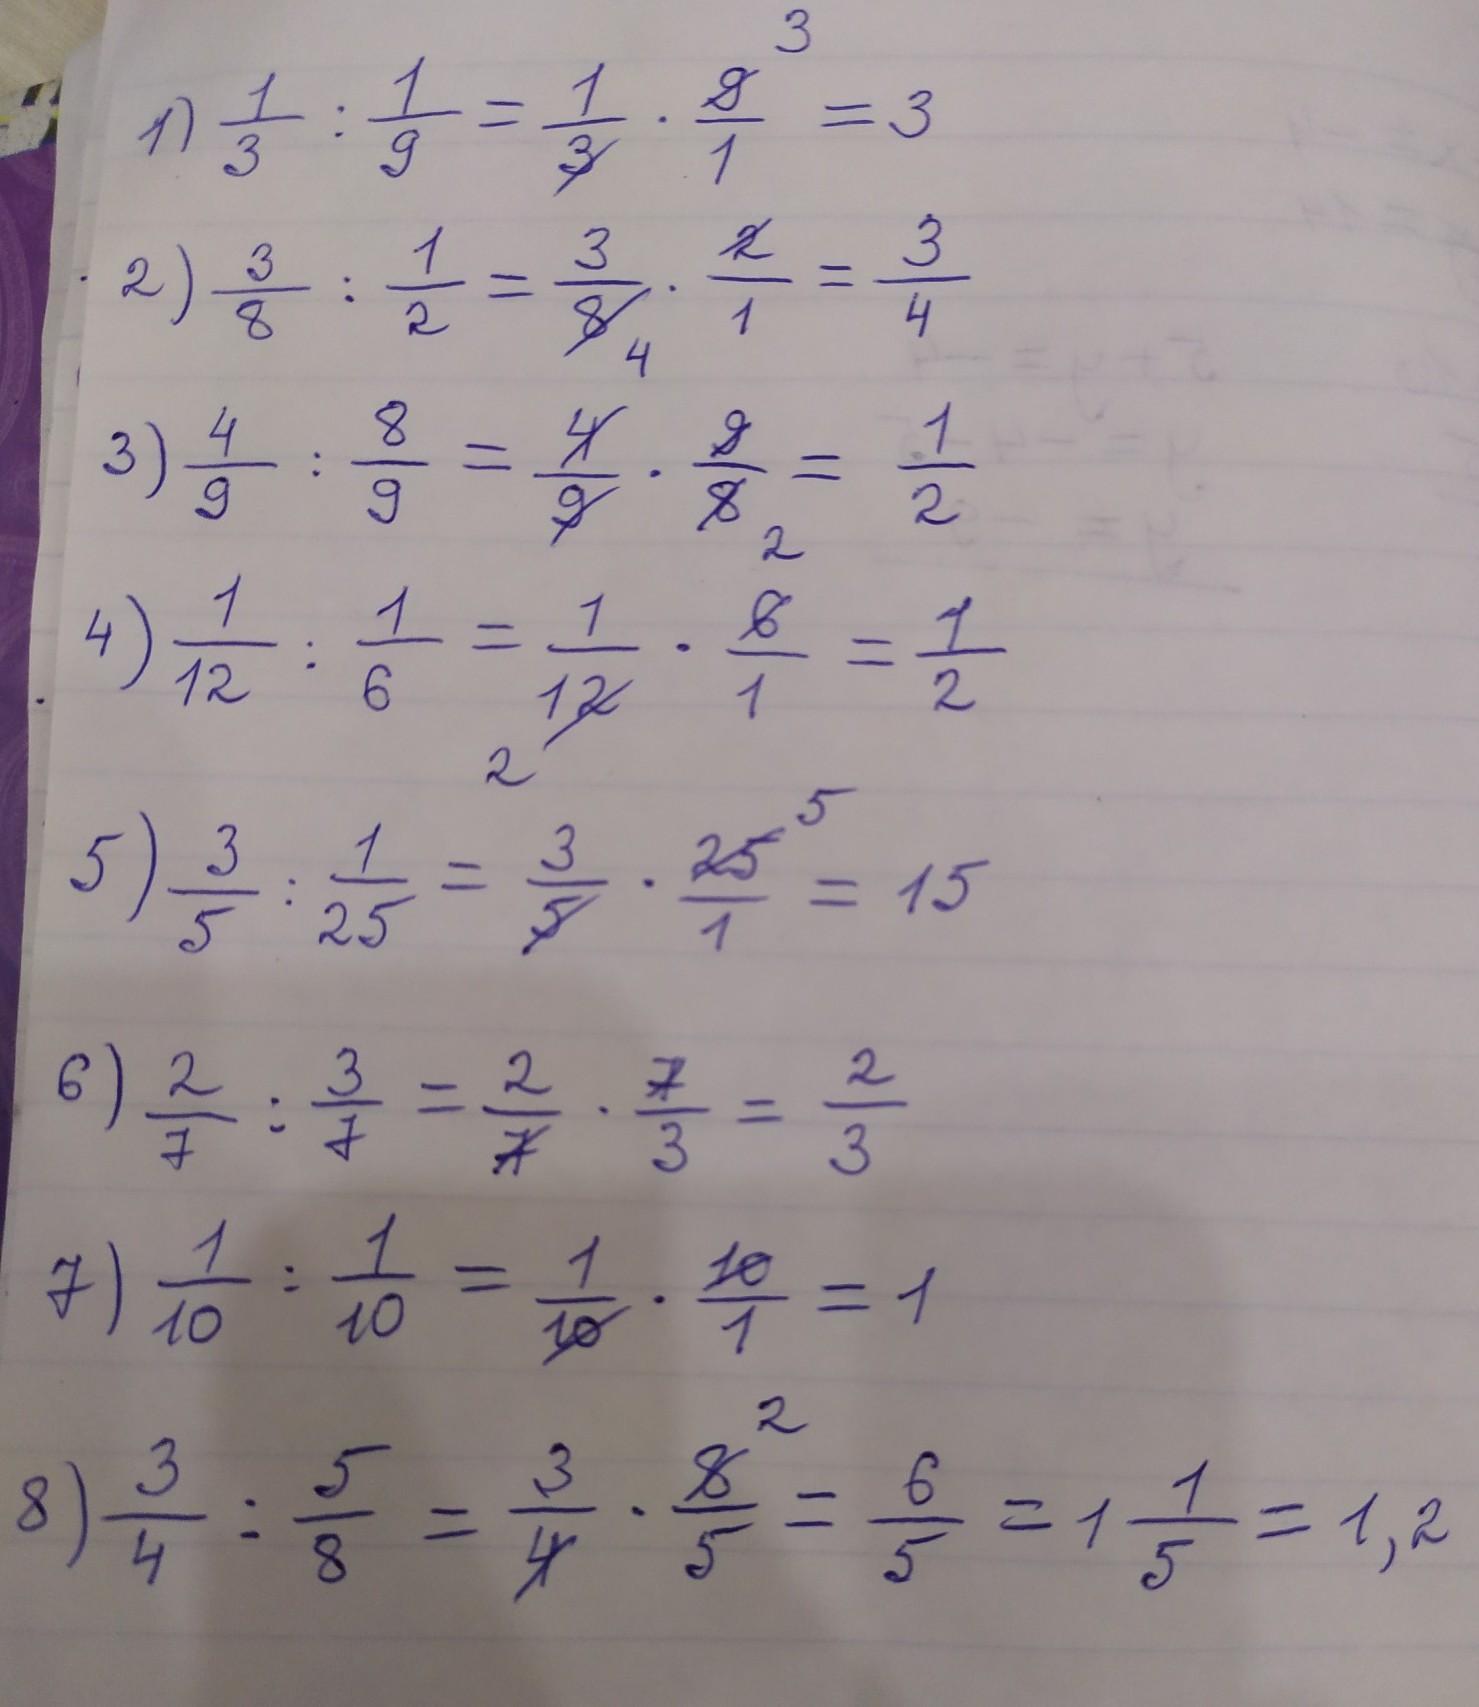 1) 1/3 : 1/9 = 1/3 · 9/1 3 = 3
2) 3/8 : 1/2 = 3/8 4 · 2/1 = 3/4
3) 4/9 : 8/9 = 4/9 · 9/8 2 = 1/2
4) 1/12 : 1/6 = 1/12 2 · 6/1 = 1/2
5) 3/5 : 1/25 = 3/5 · 25/1 5 = 15
6) 2/7 : 3/7 = 2/7 · 7/3 = 2/3
7) 1/10 : 1/10 = 1/10 · 10/1 = 1
8) 3/4 : 5/8 = 3/4 · 8/5 2 = 6/5 = 1 1/5 = 1,2